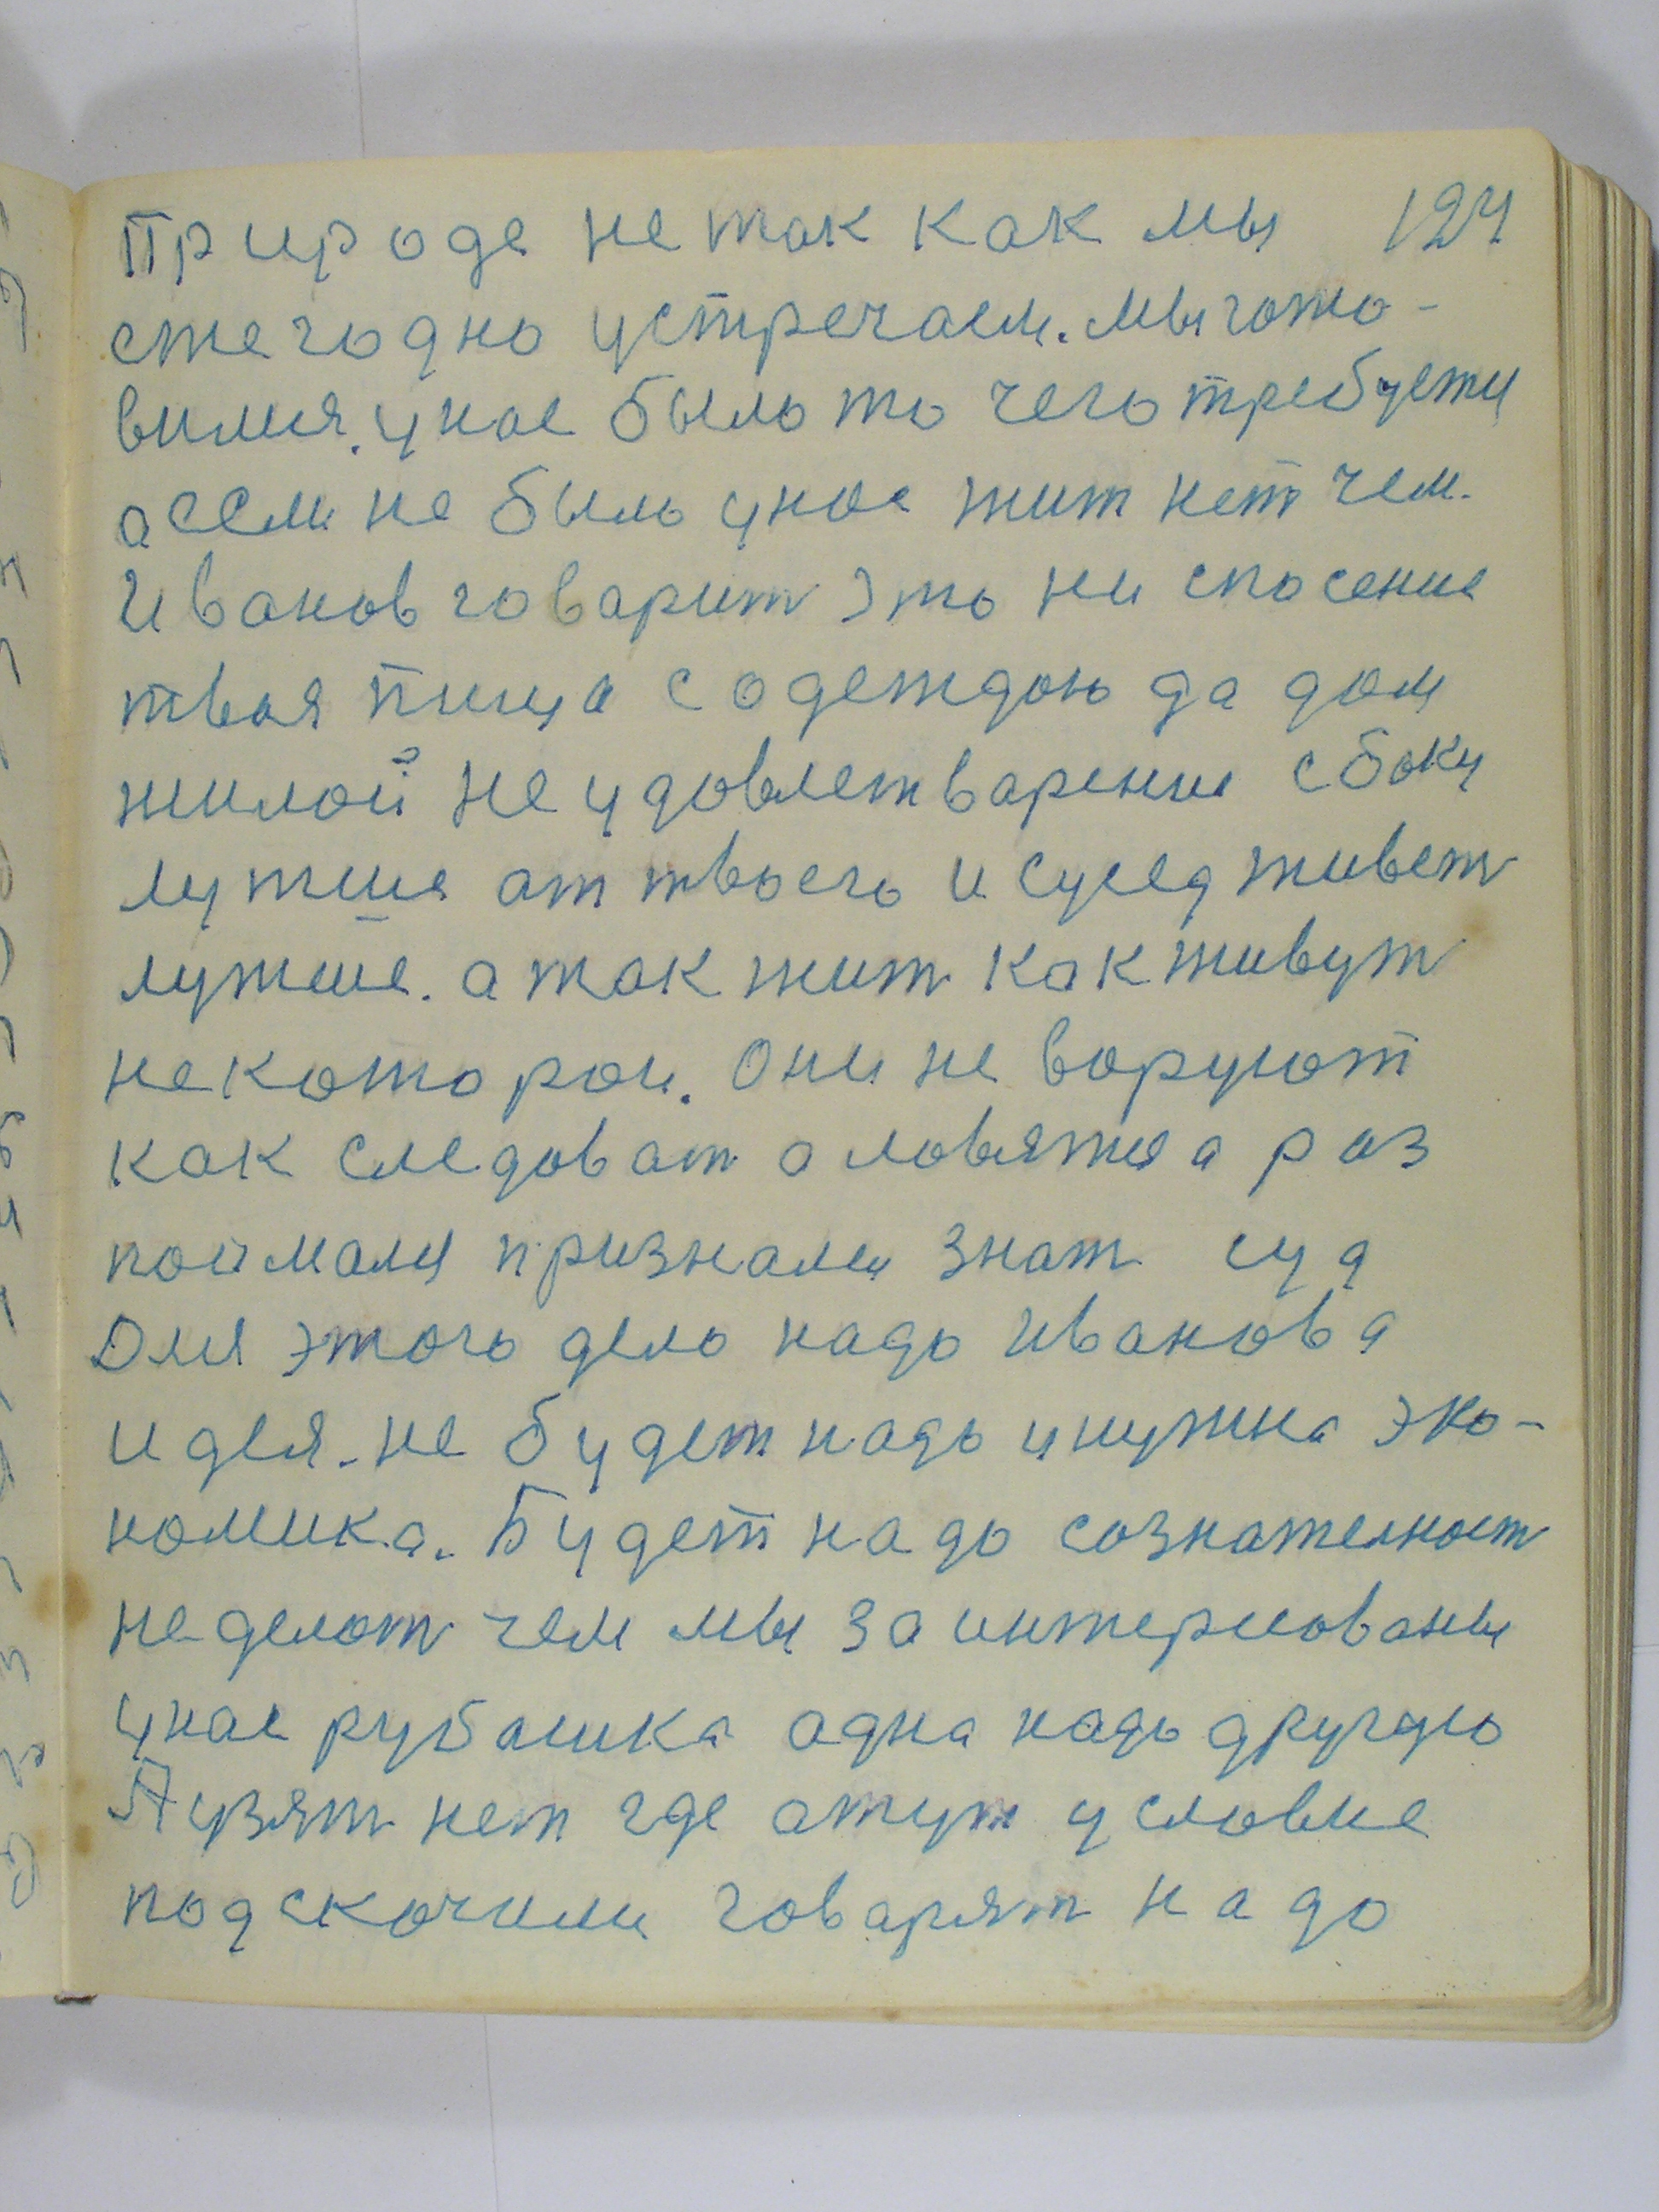 Природе не так как мы 124
ежегодно устречаем. мы гото-
вимся. унас было то чего требуетци
а если не было унас жит нет чем.
Иванов говарит это ни спосение
твоя пища с одеждою да дом
жилой не удовлетварение сбоку
лутше от твоего и сусед живет
лутше. а так жит как живут
некоторои. Они не воруют
как следоват а ловятся а раз
поймался признался знат суд
Для этого дело надо Иванова
идея. не будет надо и нужна эко-
номика. Будет надо сознателност
не делат чем мы заинтерисованы
унас рубашка адна надо другую
А узят нет где а тут условие
подскочили говарят надо